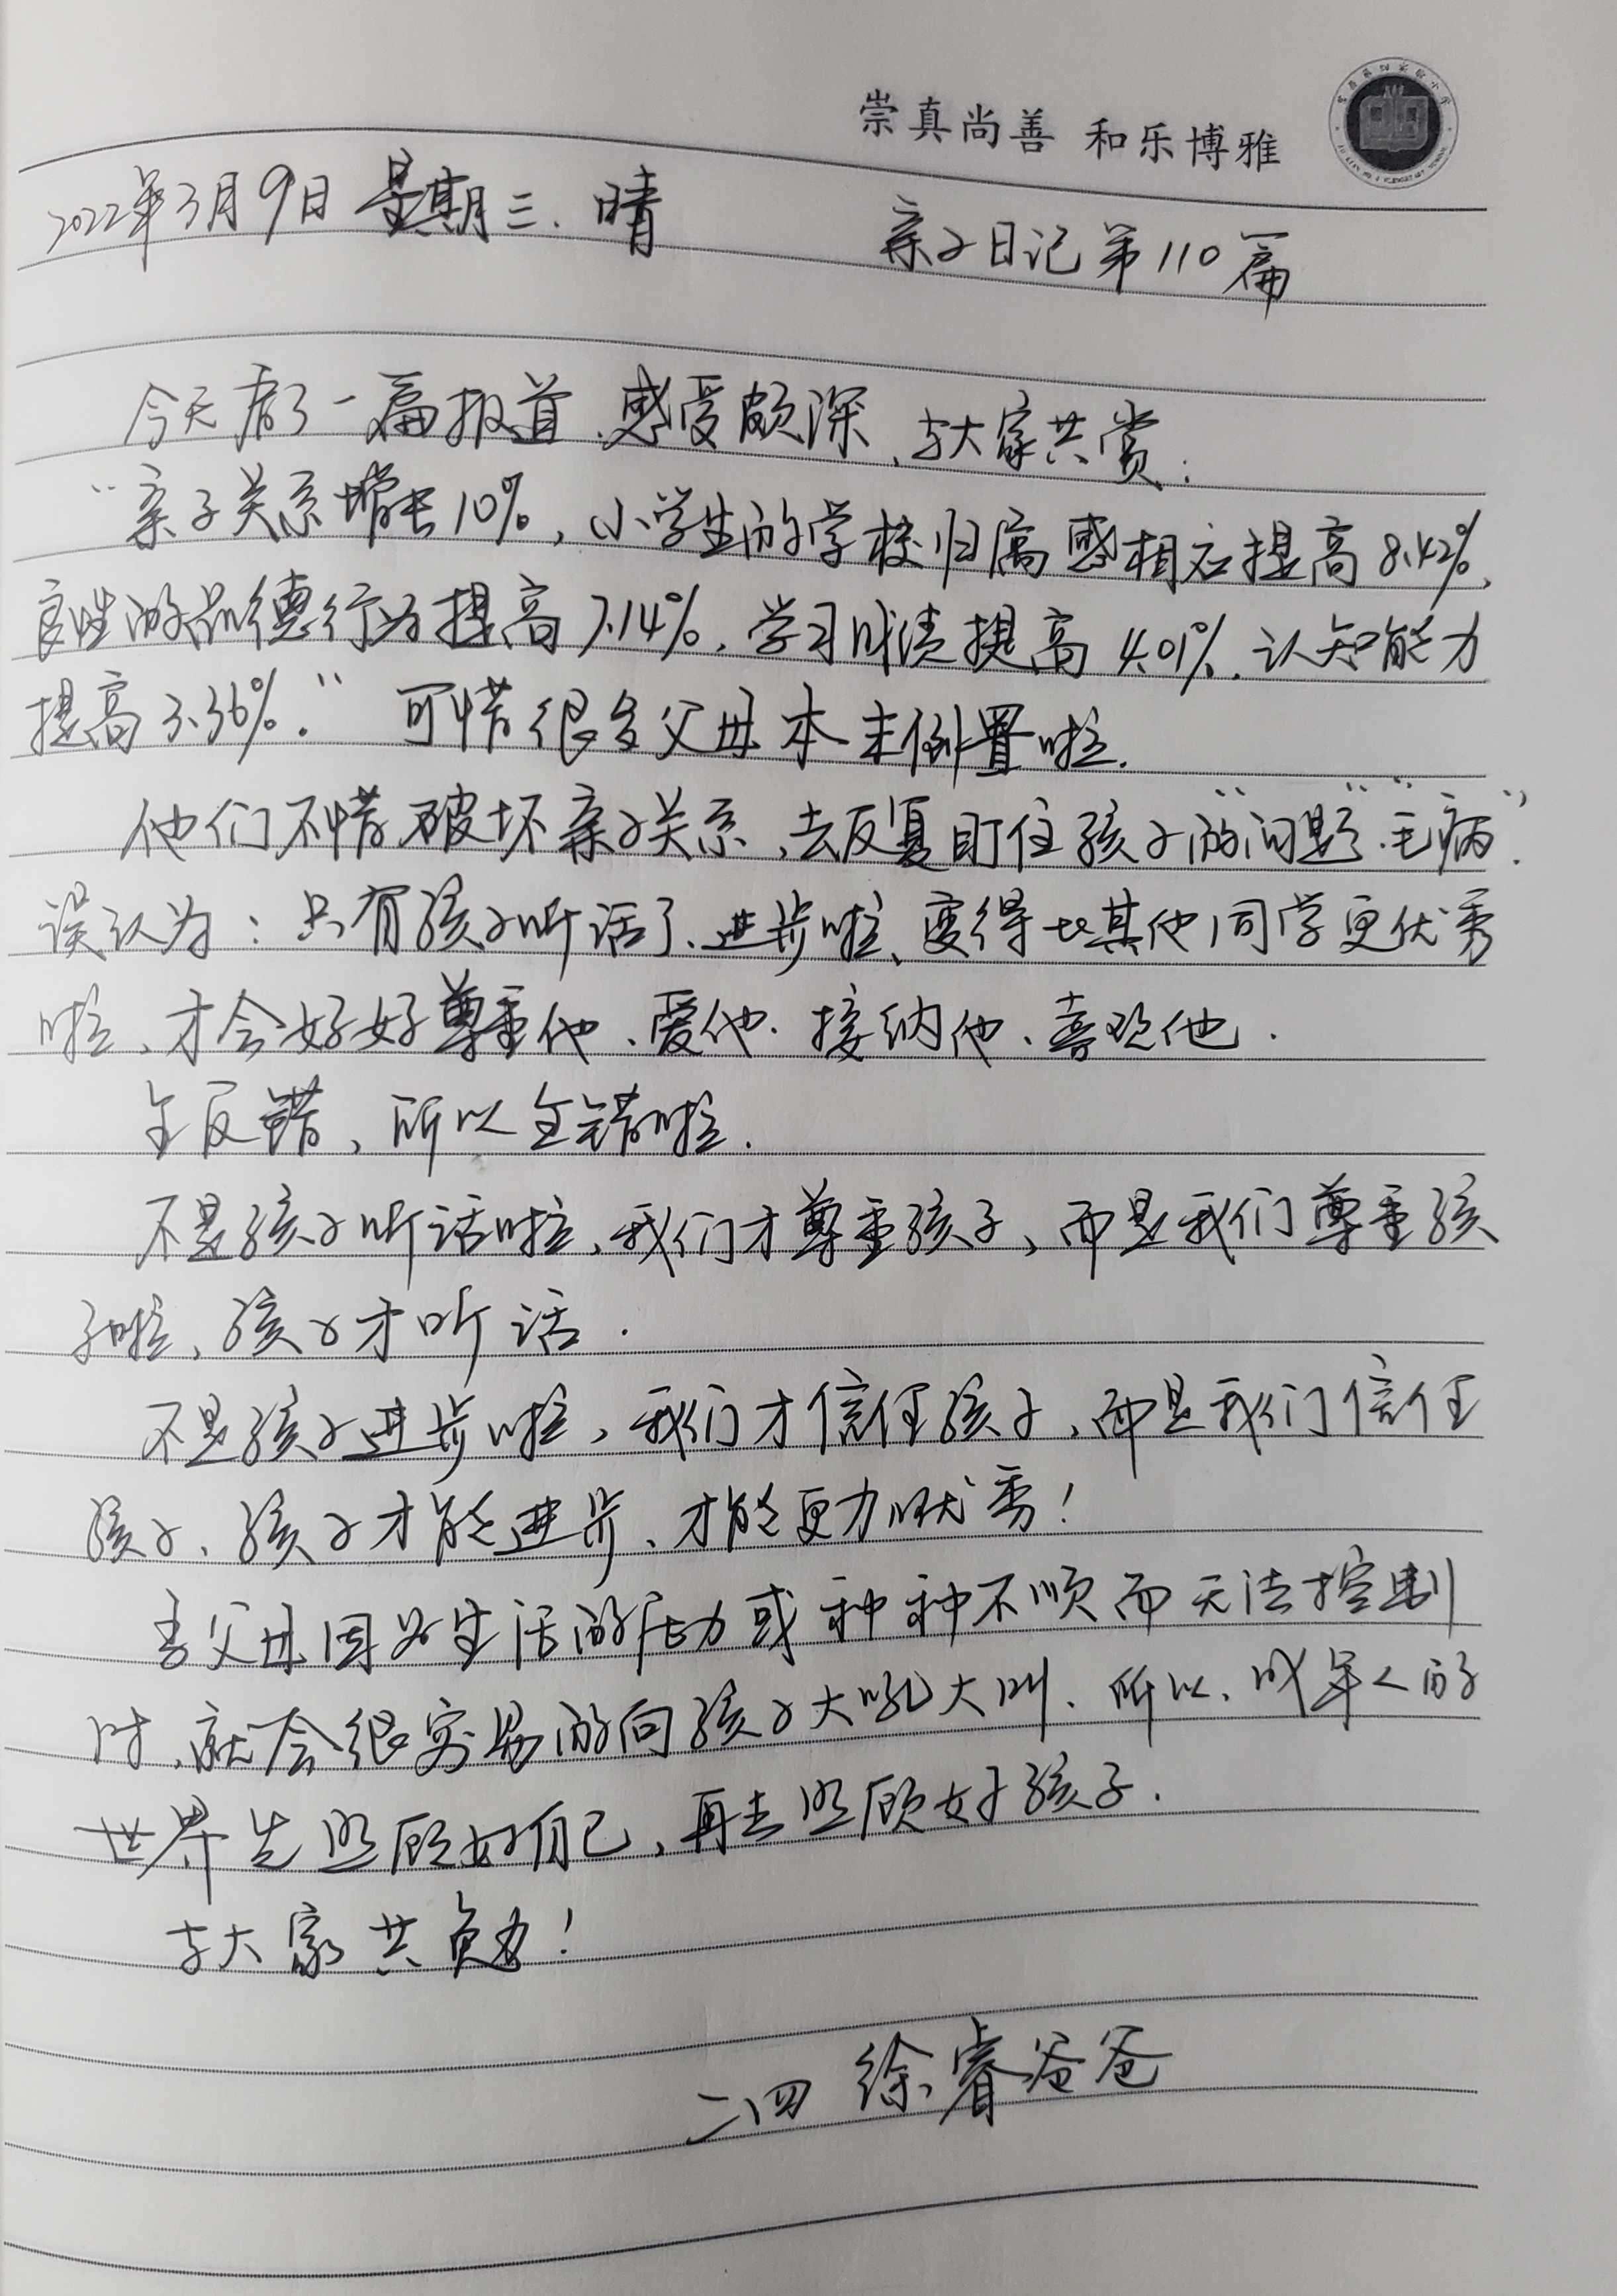 崇真尚善 和乐博雅
2022年3月9日 星期三. 晴
亲子日记第110篇
今天看了一篇报道、感受颇深、与大家共赏:
"亲子关系增长10%,小学生的学校归属感相应提高8.42%,
良性的品德行为提高7.14%、学习成绩提高4.01%、认知能力
提高3.36%." 可惜很多父母本末倒置啦.
他们不惜破坏亲子关系、去反复盯住孩子的"问题"、"毛病".
误认为:只有孩子听话了、进步啦、变得比其他同学更优秀
啦、才会好好尊重他、爱他、接纳他、喜欢他.
全反错,所以全错啦.
不是孩子听话啦、我们才尊重孩子、而是我们尊重孩
子啦、孩子才听话.
不是孩子进步啦、我们才信任孩子、而是我们信任
孩子、孩子才能进步、才能更加优秀!
当父母因为生活的压力或种种不顺而无法控制
时、就会很容易的向孩子大吼大叫、所以、成年人的
世界先照顾好自己,再去照顾好孩子.
与大家共勉!
二、四 徐睿爸爸